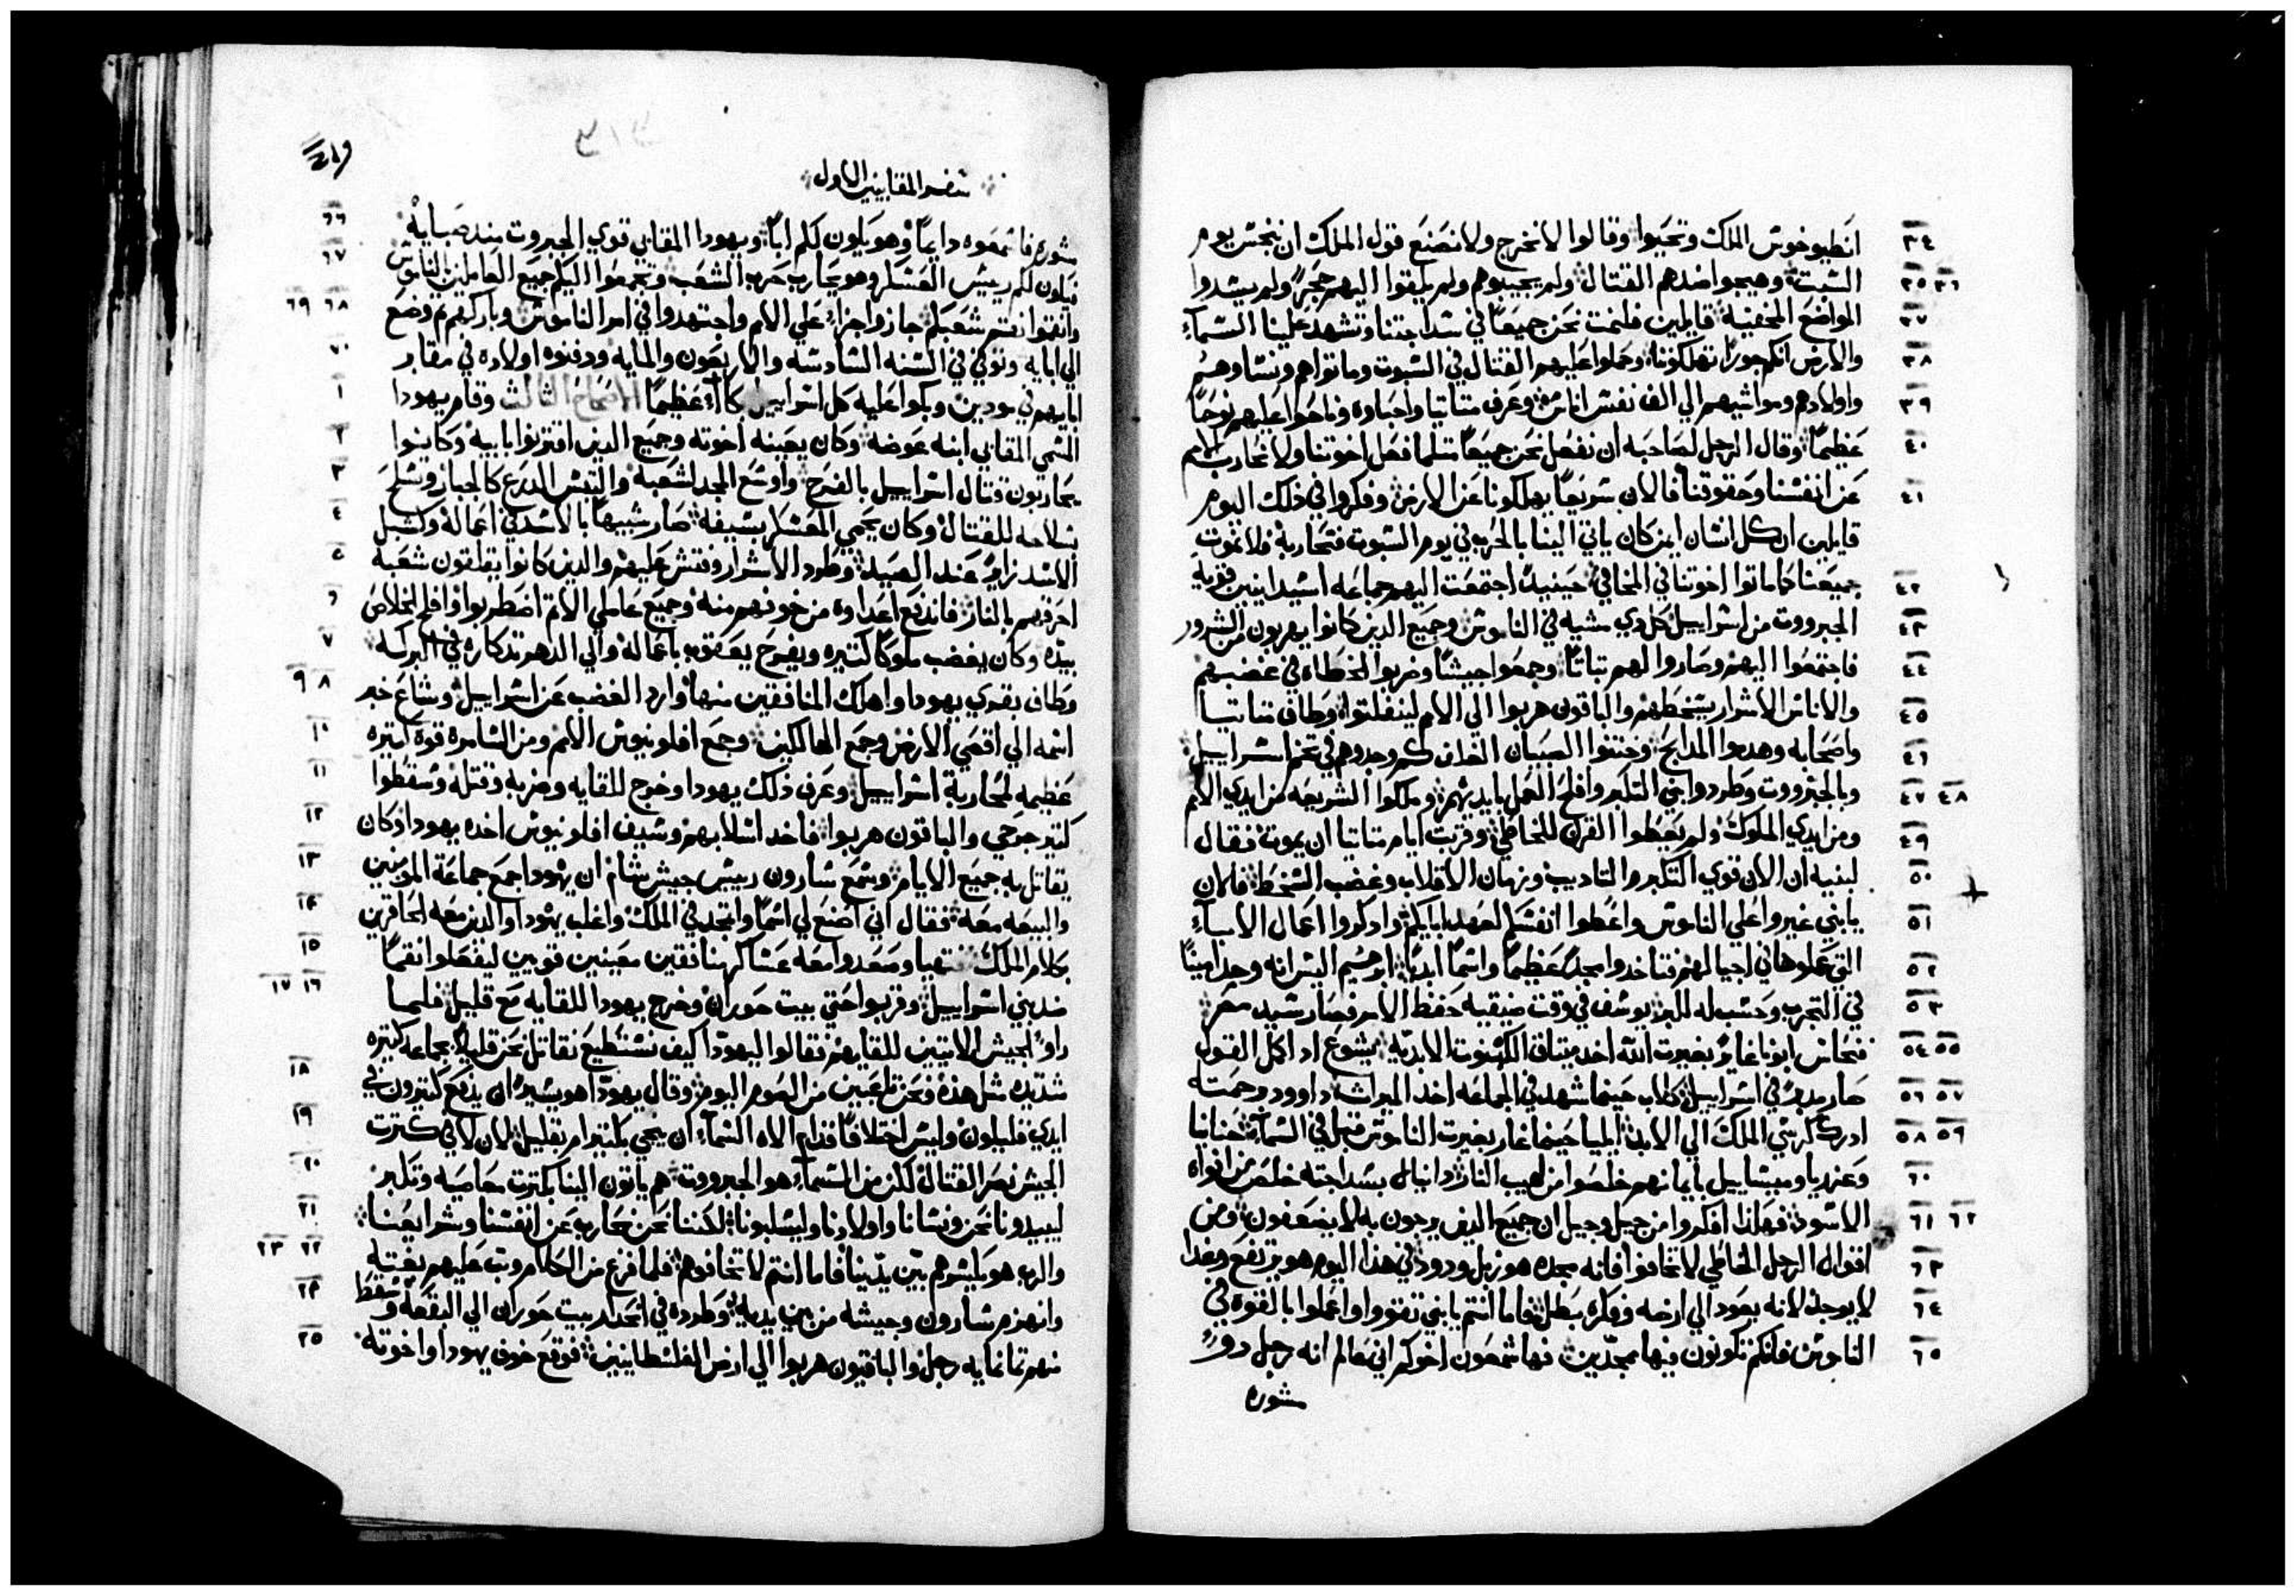 ٣٤ انطيوخوس الملك وتحيوا وقالوا لا نخرج ولا نصنع قول الملك ان ننجس يوم
٣٥ ٣٦ السبت وهيجوا ضدهم القتال ولم يجيبوهم ولم يلقوا اليهم حجرًا ولم يسدوا
٣٧ المواضع المخفية قايلين فلنمت نحن جميعًا في سداجتنا وتشهد علينا السمآء
٣٨ والارض انكم جورًا تهلكوننا وحملوا عليهم القتال في السبوت وماتوا هم ونساوهم
٣٩ واولادهم ومواشيهم الي الف نفس اناس وعرف متاتيا واحباوه وناحوا عليهم نوحًا
٤٠ عظيمًا وقال الرجل لصاحبه ان نفعل نحن جميعًا مثلما فعل اخوتنا ولا نحارب الامم
٤١ عن انفسنا وحقوقنا فالان سريعًا يهلكونا عن الارض وفكروا في ذلك اليوم
قايلين ان كل انسان ايمن كان ياتي الينا بالحرب في يوم السبوت فنحاربه فلا نموت
٤٢ جميعنا كما ماتوا اخوتنا في المخافي حينيدٍ اجتمعت اليهم جماعه اسيدانيين قوية
٤٣ الجبرووت من اسراييل كل دي مشيه في الناموس وجميع الدين كانوا يهربون من الشرور
٤٤ فاجتمعوا اليهم وصاروا لهم تباتًا وجمعوا جيشًا وضربوا الخطاه في غضبهم
٤٥ والاناس الاشرار بسخطهم والباقون هربوا الي الامم لينفلتوا وطاف متاتيا
٤٦ واصحابه وهدموا المدابح وختنوا الصبيان الغلف كم وجدوهم في تخم اسراييل
٤٧ ٤٨ وبالجبرووت وطردوا بني التكبر وافلح العمل بايديهم وملكوا الشريعه من ايدي الامم
٤٩ ومن ايدي الملوك ولم يعطوا القرن للخاطي وقربت ايام متاتيا ان يموت فقال
٥٠ لبنيه ان الان قوي التكبر والتاديب وزمان الانقلاب وغضب السخط فالان
٥١ يابني غيروا علي الناموس واعطوا انفسكم لعهد ابايكم وادكروا اعمال الابآء
٥٢ التي عملوها في اجيالهم فتاخدوا مجدًا عظيمًا واسمًا ابديًا ابرهيم اليس انه وجد امينًا
٥٣ في التجرب وحسب له للبر يوسف في وقت ضيقيه حفظ الامر فصار سيد مصر
٥٤ ٥٥ فنحاس ابونا غايرًا بغيرت الله اخد ميثاق الكهنوت الابديه يشوع اد اكمل القول
٥٦ ٥٧ صار مدبرًا في اسراييل كالاب حينما شهد في الجماعه اخد الميراث داوود برحمته
٥٨ ٥٩ ادرك كرسي الملك الي الابد ايليا حينما غار بغيرت الناموس قبل في السمآء حنانيا
٦٠ وعزريا وميشاييل بايمانهم خلصوا من لهيب النار دانيال بسداجته خلص من افواه
٦١ ٦٢ الاسود فهكدا افكروا من جيل وجيل ان جميع الدين يرجون به لا يضعفون ومن
٦٣ اقوال الرجل الخاطي لا تخافوا فانه مجده هو زبل ودود في هذا اليوم هو يرتفع وغدا
٦٤ لا يوجد لانه يعود الي ارضه وفكره بطل فاما انتم يا بني تقووا واعملوا بالقوه في
٦٥ الناموس فانكم تكونون فيها ممجدين فها شمعون اخوكم اني عالم انه رجل دو
مشوره
٤١٩
سفر المقابيين الاول
٦٦ مشوره فاسمعوه دايمًا وهو يكون لكم ابًا ويهودا المقابي قوي الجبروت مند صبايه
٦٧ فيكون لكم رييس العسكر وهو يحارب حرب الشعب وتجمعوا اليكم جميع العاملين الناموس
٦٨ ٦٩ وانتقموا نقم شعبكم جازوا جزاءً علي الامم واجتهدوا في امر الناموس وباركهم ثم وضع
٧٠ الي ابايه وتوفي في السنه السادسه والاربعون والمايه ودفنوه اولاده في مقابر
١ ابايهم في مودين وبكوا عليه كل اسراييل بكاءً عظيمًا الاصحاح الثالث وقام يهودا
٢ المسمي المقابي ابنه عوضه وكان يعينه اخوته وجميع الدين اقترنوا بابيه وكانوا
٣ يحاربون قتال اسراييل بالفرح واوسع المجد لشعبه والتبس الدرع كالجبار وتسلح
٤ بسلاحه للقتال وكان يحمي المعسكر بسيفه صار شبيهًا بالاسد في اعماله وكشبل
٥ الاسد زايرًا عند الصيد وطرد الاشرار وفتش عليهم والدين كانوا يقلقون شعبه
٦ احرقهم بالنار فاندفع اعداوه من خوفهم منه وجميع عاملي الاتم اضطربوا وافلح الخلاص
٧ بيده وكان يغضب ملوكًا كثيره ويفرح يعقوب باعماله والي الدهر تدكاره في البركه
٨ ٩ وطاف بقري يهودا واهلك المنافقين منها وارد الغضب عن اسراييل وشاع خبر
١٠ اسمه الي اقصي الارض وجمع الهالكين وجمع افلونيوس الامم ومن السامره قوة كثيره
١١ عظيمه لمحاربة اسراييل وعرف ذلك يهودا وخرج للقايه وضربه وقتله وسقطوا
١٢ كثير جرحي والباقون هربوا فاخد اسلابهم وسيف افلونيوس اخده يهودا وكان
١٣ يقاتل به جميع الايام وسمع سارون رييس جيش شام ان يهودا جمع جماعة المومنين
١٤ والبيعه معه فقال اني اصنع لي اسمًا واتمجد في الملك واغلب يهودا والدين معه الحاقرين
١٥ بكلام الملك فتهيا وصعدوا معه عساكر منافقين معينين قويين ليفعلوا نقمًا
١٦ ١٧ ضد بني اسراييل وقربوا حتي بيت حوران وخرج يهودا للقايه مع قليل فلما
راوا الجيش الاتيين للقايهم فقالوا ليهودا كيف نستطيع نقاتل نحن قليلًا بجماعه كثيره
١٨ شديده مثل هذه ونحن تاعبين من الصوم اليوم وقال يهودا هو يسير ان يدفع كثيرون في
١٩ ايدي قليلون وليس اختلافًا قدام الاه السمآء ان يحيي بكثير ام بقليل لان لا في كثرت
٢٠ الجيش نصر القتال لكن من السمآء هو الجبرووت هم ياتون الينا بكثرت معاصيه وتكبر
٢١ ليبيدونا نحن ونسانا واولادنا وليسلبونا لكننا نحن نحارب عن انفسنا وشرايعنا
٢٢ ٢٣ والرب هو يكسرهم بين يدينا فاما انتم لا تخافوهم فلما فرغ من الكلام وتب عليهم بغتة
٢٤ وانهزم سارون وجيشه من بين يديه وطرده في انحدار بيت حوران الي البقعه وسقط
٢٥ منهم تمانمايه رجل والباقيون هربوا الي ارض الفلسطانيين فوقع خوف يهودا واخوته